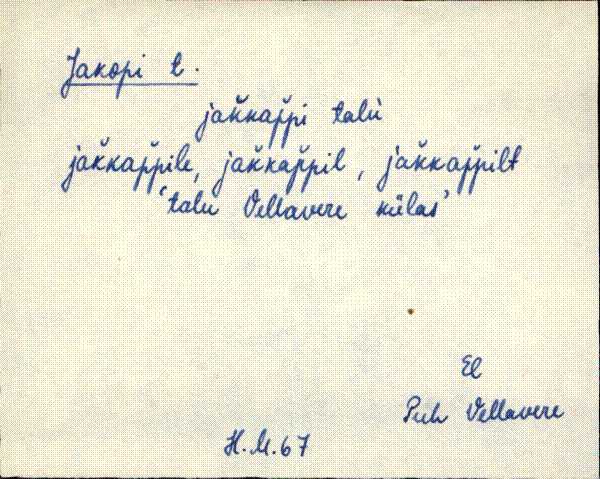 Jakopi t.
jak̆kap̆pi talù
jak̆kap̆pile, jak̆kap̆pil, jak̆kap̆pilt
'talu Vellavere külas'
El
Puh Vellavere
H.M.67